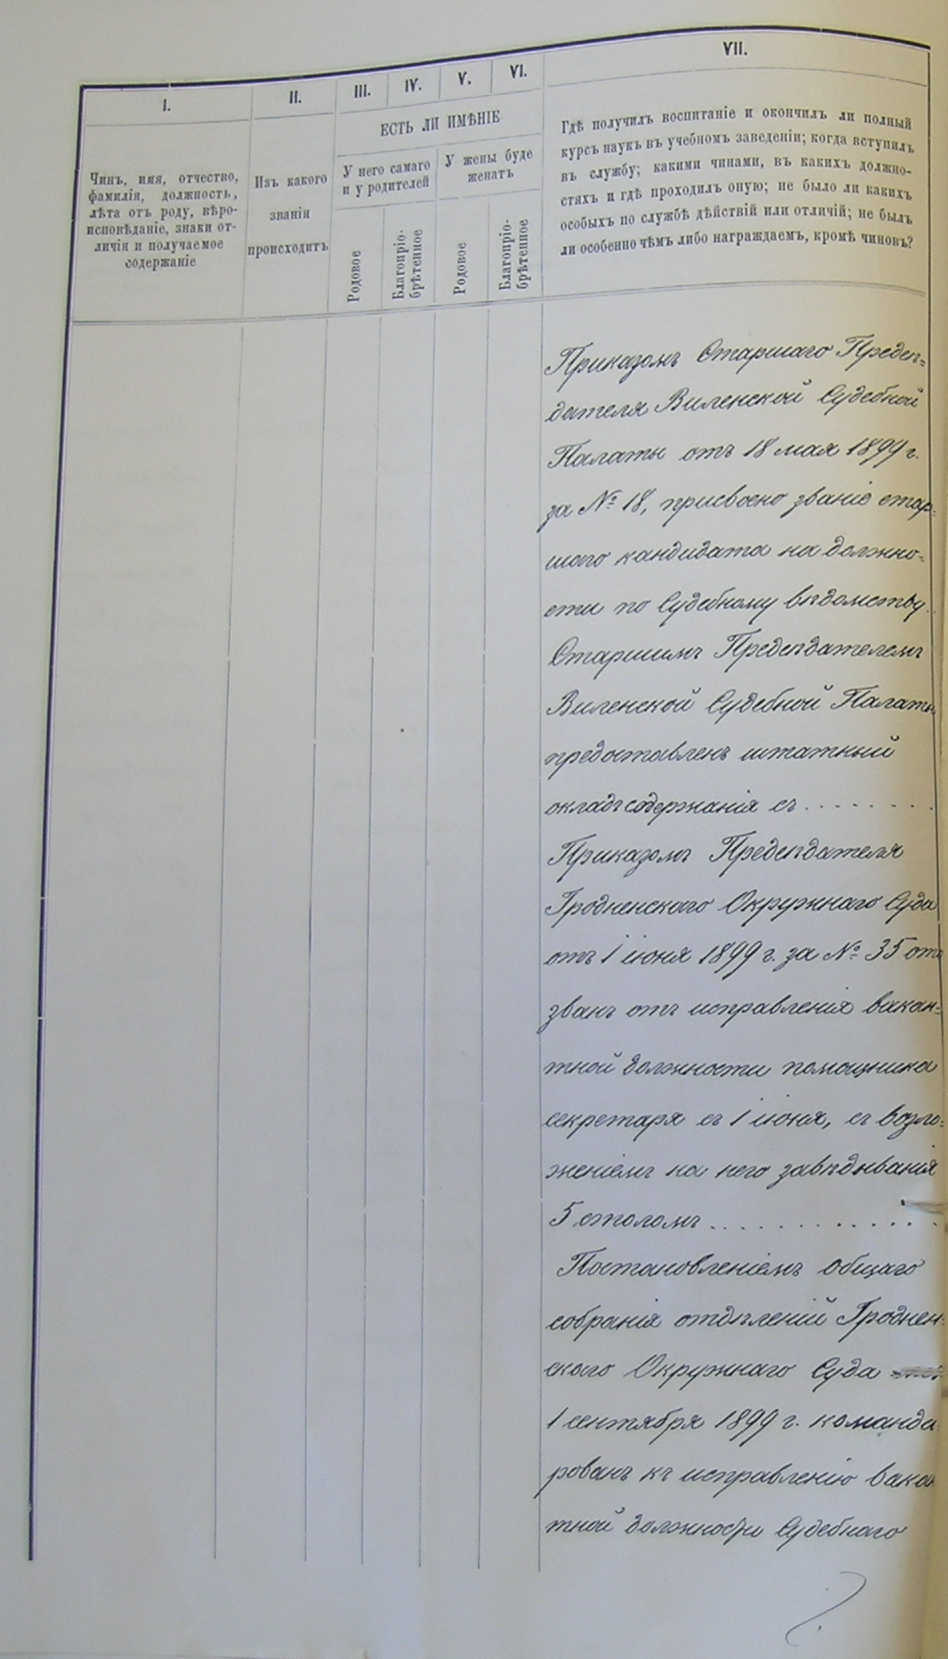 I.
II.
III.
IV.
V.
VI.
VII.
Чинъ, имя, отчество,
фамилія, должность,
лѣта отъ роду, вѣро-
исповѣданіе, знаки от-
личія и получаемое
содержаніе
Изъ какого
званія
происходитъ
ЕСТЬ ЛИ ИМѢНІЕ
У него самаго
и у родителей
У жены буде
женатъ
Родовое
Благопріо-
брѣтенное
Родовое
Благопріо-
брѣтенное
Гдѣ получилъ воспитаніе и окончилъ ли полный
курсъ наукъ въ учебномъ заведеніи; когда вступилъ
въ службу; какими чинами, въ какихъ должно-
стяхъ и гдѣ проходилъ оную; не было ли какихъ
особыхъ по службѣ дѣйствій или отличій; не былъ
ли особенно чѣмъ либо награждаемъ, кромѣ чиновъ?
Приказомъ Старшаго Предсѣ=
дателя Виленской Судебной
Палаты отъ 18 мая 1899 г.
за № 18, присвоено званіе стар=
шаго кандидата на должно=
сти по Судебному вѣдомству.
Старшимъ Предсѣдателемъ
Виленской Судебной Палаты
предоставленъ штатный
окладъ содержанія съ ........
Приказомъ Предсѣдателя
Гродненскаго Окружнаго Суда
отъ 1 іюня 1899 г. за № 35 ото
званъ отъ исправленія вакан=
тной должности помощника
секретаря съ 1 іюня, съ возло=
женіемъ на него завѣдыванія
5 столомъ .............
Постановленіемъ общаго
собранія отдѣленій Гроднен=
скаго Окружнаго Суда
1 сентября 1899 г. команди
рованъ къ исправленію вакан
тной должности Судебнаго